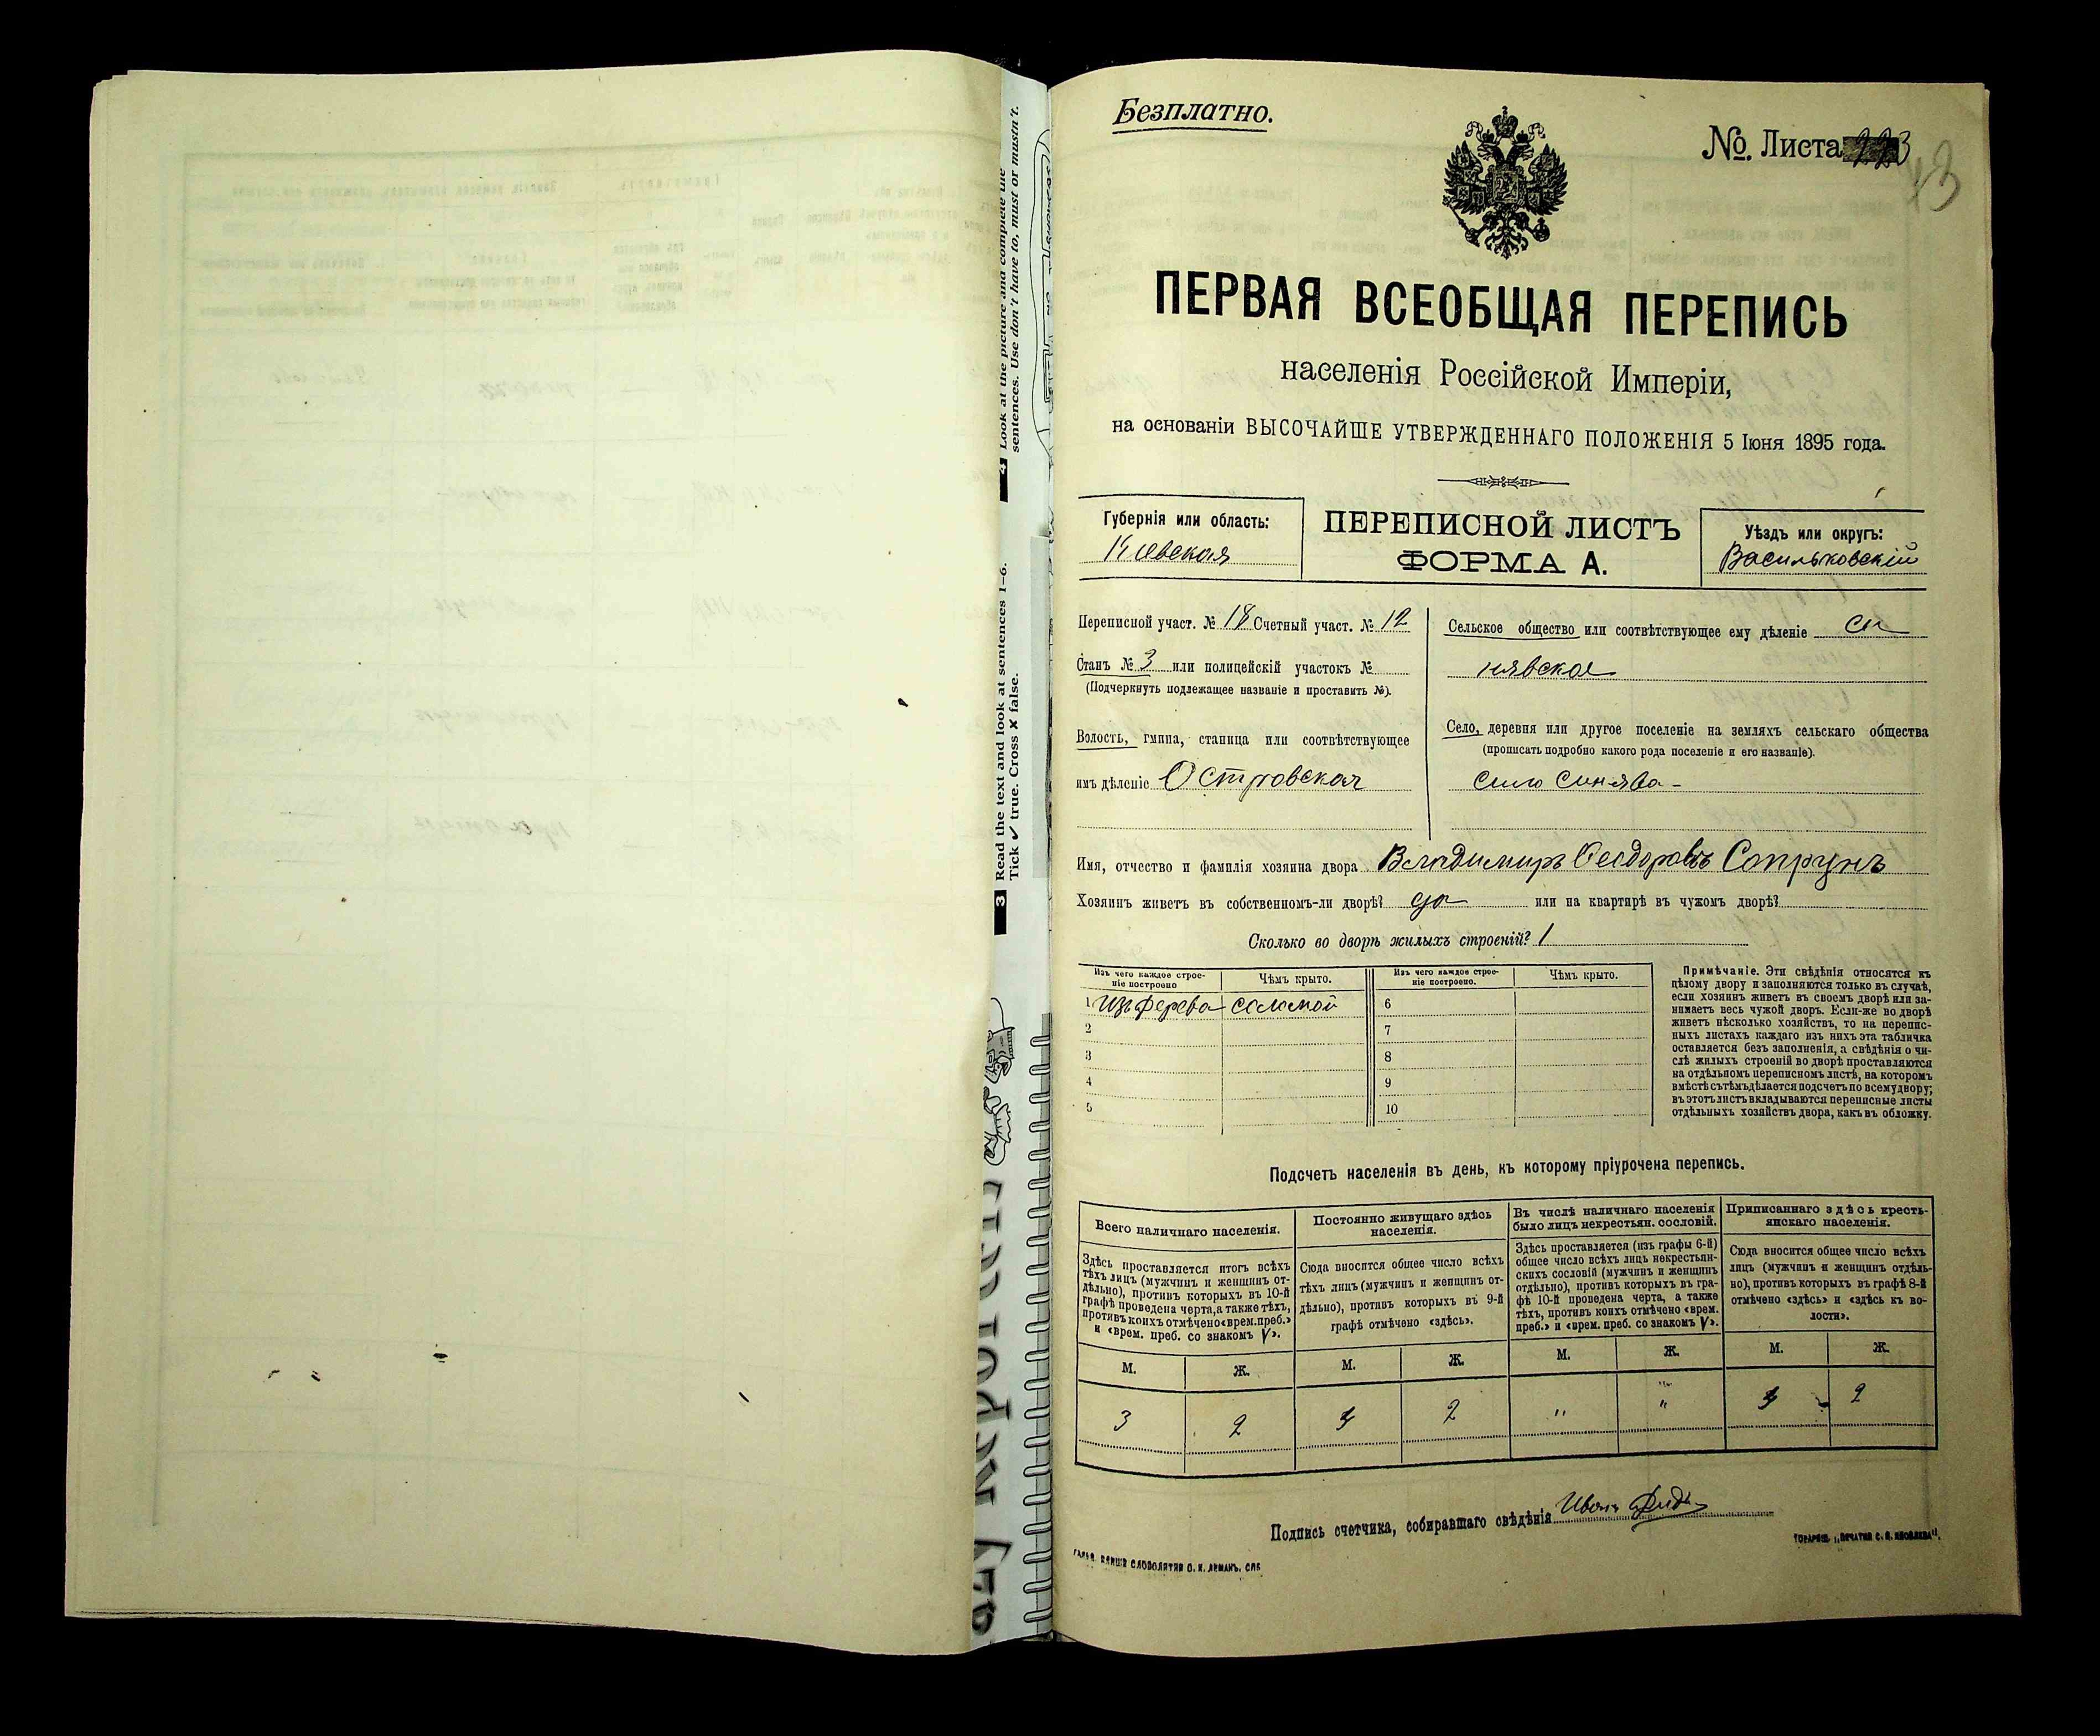 Безплатно.
№. Листа
43
ПЕРВАЯ ВСЕОБЩАЯ ПЕРЕПИСЬ
населенія Россійской Имперіи,
на основаніи ВЫСОЧАЙШЕ УТВЕРЖДЕННАГО ПОЛОЖЕНІЯ 5 Іюня 1895 года.
Губернія или область:
Кіевская
ПЕРЕПИСНОЙ ЛИСТЪ
ФОРМА А.
Уѣздъ или округъ:
Васильковскій
Переписной участ. № 18 Счетный участ. № 12
Станъ № 3 или полицейскій участокъ №
(Подчеркнуть подлежащее названіе и проставить №).
Волость, гмина, станица или соотвѣтствующее
имъ дѣленіе Островская
Сельское общество или соотвѣтствующее ему дѣленіе Си
нявское
Село, деревня или другое поселеніе на земляхъ сельскаго общества
(прописать подробно какого рода поселеніе и его названіе).
село Синява -
Имя, отчество и фамилія хозяина двора Владимиръ Ѳеодоровъ Сопрунъ
Хозяинъ живетъ въ собственномъ-ли дворѣ? да или на квартирѣ въ чужомъ дворѣ?
Сколько во дворѣ жилыхъ строеній? 1
Изъ чего каждое строе-
ніе построено
Чѣмъ крыто.
Изъ чего каждое строе-
ніе построено.
Чѣмъ крыто.
1 Изъ дерева соломой
2
3
4
5
6
7
8
9
10
Примѣчаніе. Эти свѣдѣнія относятся къ
цѣлому двору и заполняются только въ случаѣ,
если хозяинъ живетъ въ своемъ дворѣ или за-
нимаетъ весь чужой дворъ. Если-же во дворѣ
живетъ нѣсколько хозяйствъ, то на перепис-
ныхъ листахъ каждаго изъ нихъ эта табличка
оставляется безъ заполненія, а свѣдѣнія о чи-
слѣ жилыхъ строеній во дворѣ проставляются
на отдѣльномъ переписномъ листѣ, на которомъ
вмѣстѣ съ тѣмъ дѣлается подсчетъ по всему двору;
въ этотъ листъ вкладываются переписные листы
отдѣльныхъ хозяйствъ двора, какъ въ обложку.
Подсчетъ населенія въ день, къ которому пріурочена перепись.
Всего наличнаго населенія.
Здѣсь проставляется итогъ всѣхъ
тѣхъ лицъ (мужчинъ и женщинъ от-
дѣльно), противъ которыхъ въ 10-й
графѣ проведена черта, а также тѣхъ,
противъ коихъ отмѣчено «врем. преб.»
и «врем. преб. со знакомъ V».
М. Ж.
3 2
Постоянно живущаго здѣсь
населенія.
Сюда вносится общее число всѣхъ
тѣхъ лицъ (мужчинъ и женщинъ от-
дѣльно), противъ которыхъ въ 9-й
графѣ отмѣчено «здѣсь».
М. Ж.
2
Въ числѣ наличнаго населенія
было лицъ некрестьян. сословій.
Здѣсь проставляется (изъ графы 6-й)
общее число всѣхъ лицъ некрестьян-
скихъ сословій (мужчинъ и женщинъ
отдѣльно), противъ которыхъ въ гра-
фѣ 10-й проведена черта, а также
тѣхъ, противъ коихъ отмѣчено «врем.
преб.» и «врем. преб. со знакомъ V».
М. Ж.
" "
Приписаннаго здѣсь кресть-
янскаго населенія.
Сюда вносится общее число всѣхъ
лицъ (мужчинъ и женщинъ отдѣль-
но), противъ которыхъ въ графѣ 8-й
отмѣчено «здѣсь» и «здѣсь къ во-
лости».
М. Ж.
2
Подпись счетчика, собиравшаго свѣдѣнія Иванъ
СЛОВОЛИТНЯ О. И. ЛЕМАНЪ. СПБ
ТОВАРИЩ. „ПЕЧАТНЯ С. П. ЯКОВЛЕВА".
3 Read the text and look at sentences 1–6.
Tick ✓ true. Cross ✗ false.
4 Look at the picture and complete the
sentences. Use don't have to, must or mustn't.